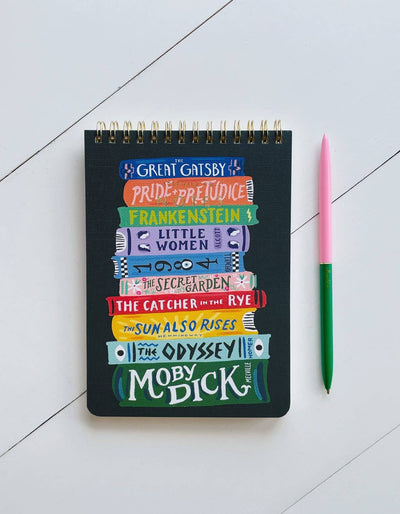 THE
GREAT GATSBY
PRIDE + PREJUDICE
FRANKENSTEIN
LITTLE
WOMEN
ALCOTT
1984
THE SECRET
GARDEN
THE CATCHER IN THE RYE
THE SUN ALSO RISES
HEMINGWAY
THE ODYSSEY
HOMER
MOBY
DICK
MELVILLE